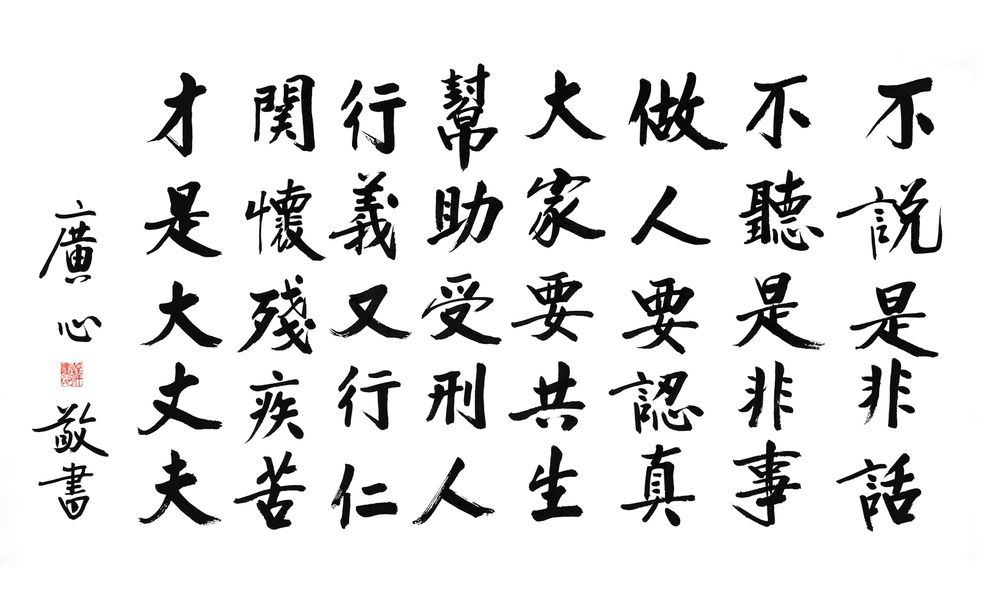 不說是非話
不聽是非事
做人要認真
大家要共生
幫助受刑人
行義又行仁
関懷殘疾苦
才是大丈夫
廣心敬書